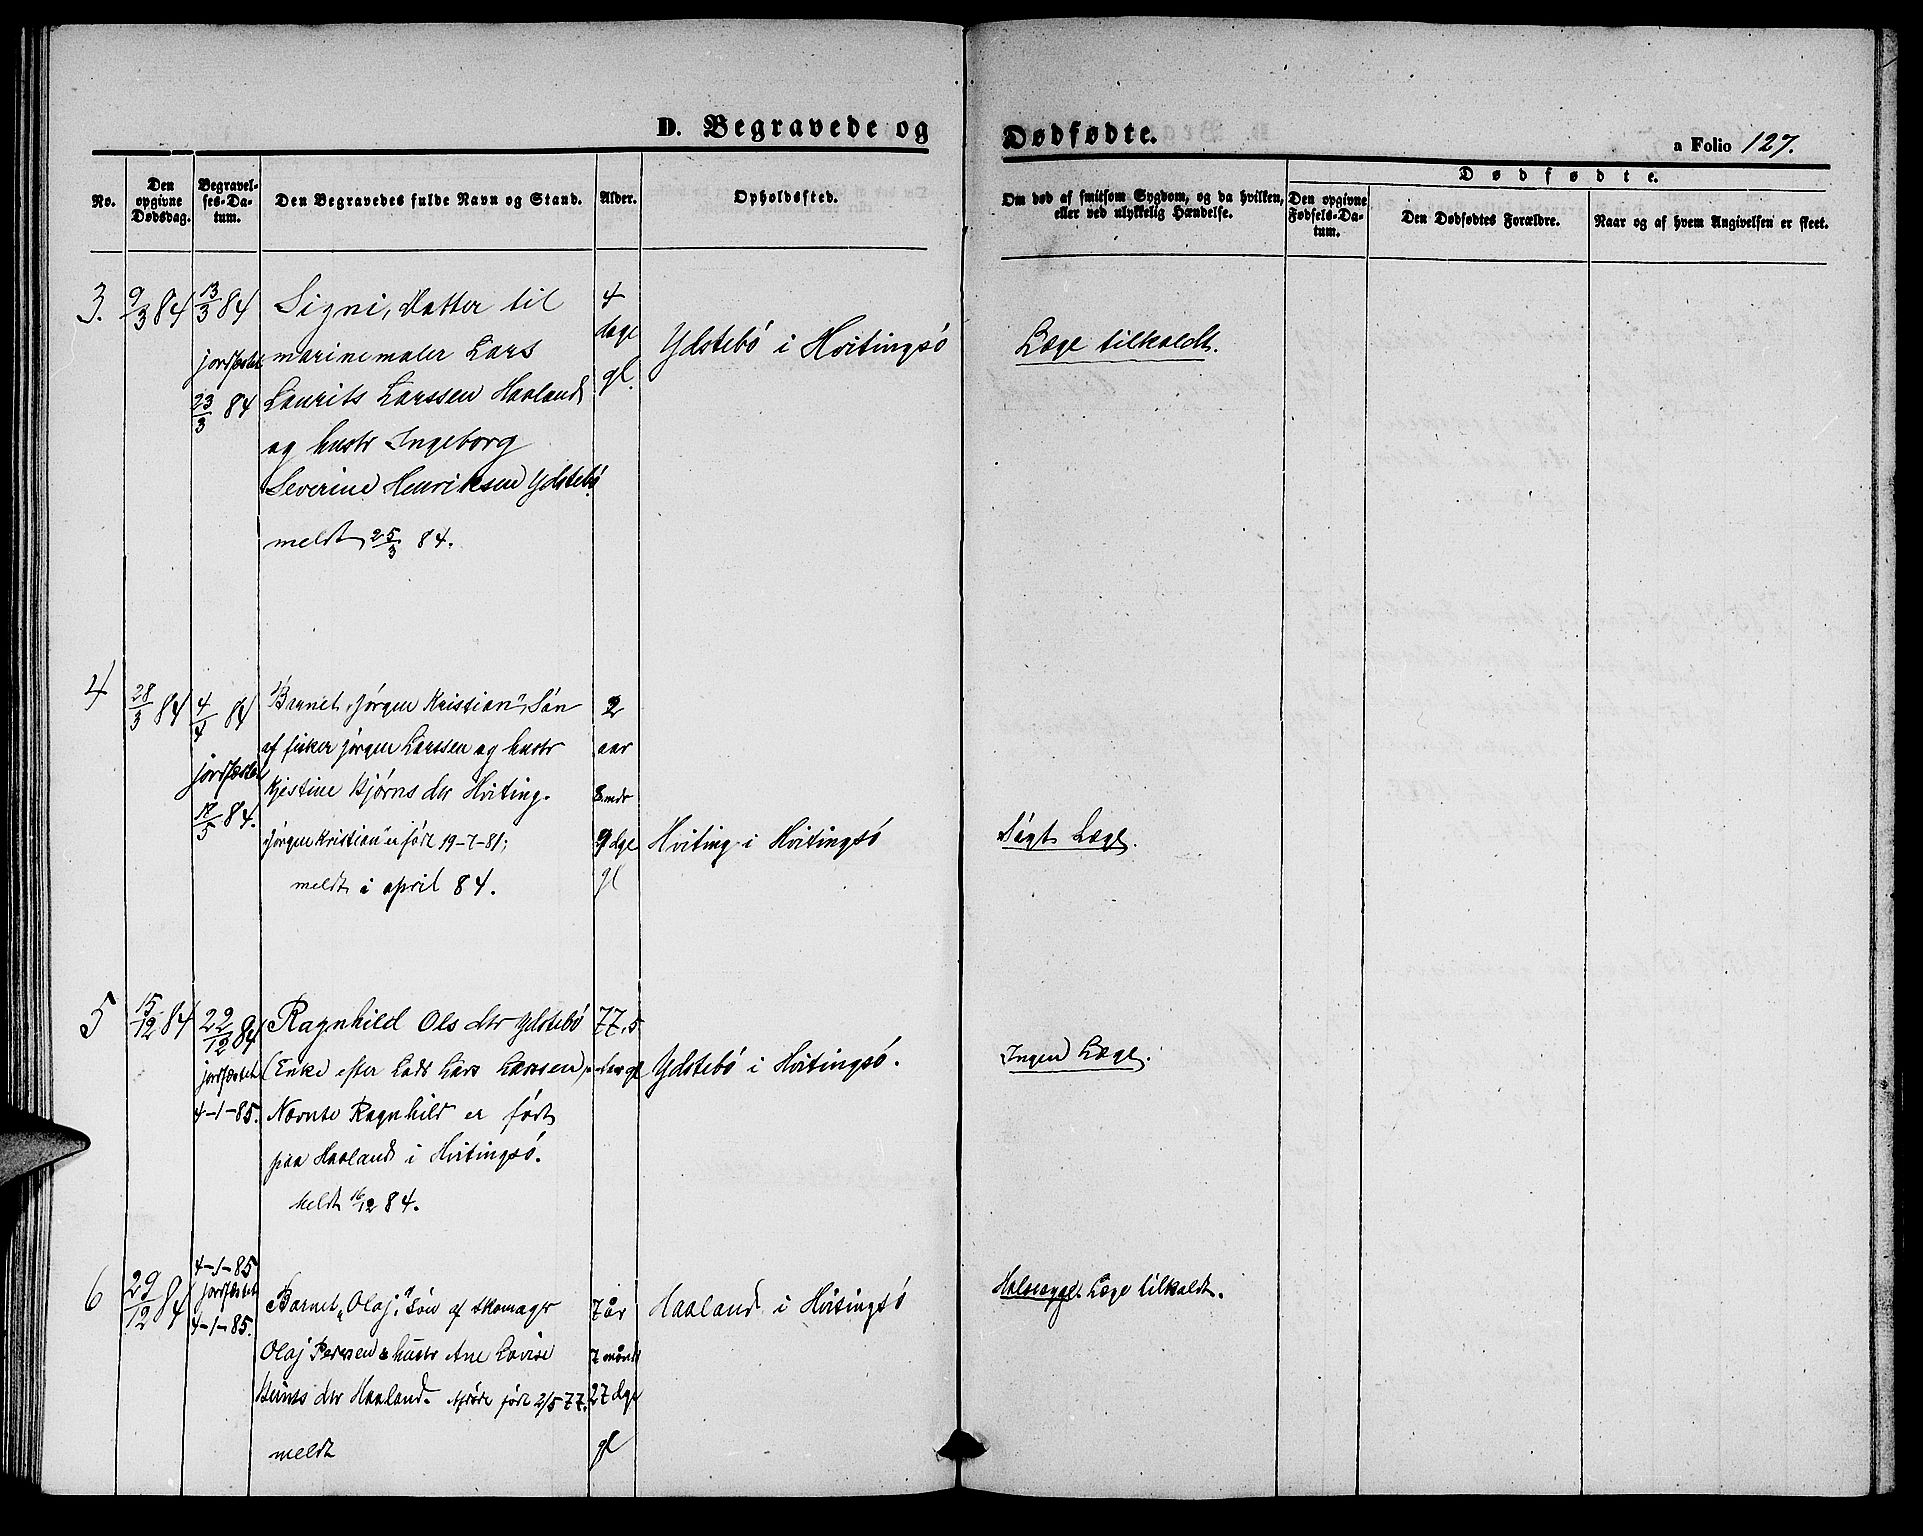 D. Begravede og
Dødfødte.
a Folio 127.
No.
Den opgivne Dødsdag.
Begravelses-Datum.
Den Begravedes fulde Navn og Stand.
Alder.
Opholdssted.
Om død af smitsom Sygdom, og da hvilken, eller ved ulykkelig Hændelse.
Dødfødte.
Den opgivne Fødsels-Datum.
Den Dødfødtes Forældre.
Naar og af hvem Angivelsen er skeet.
3.
9/3 84
13/3 84
jordfæstet
23/3 84
Signi, Datter til
marinemaler Lars
Laurits Larssen Haaland
og hustr Ingeborg
Severine Henriksen Ydstebö
meldt 25/3 84.
4
dage
gl.
Ydstebö i Hvitingsö
Læge tilkaldt.
4
28/3 84
4/4 84
jordfæstet
12/5 84.
Barnet „Jörgen Kristian", Sön
af fisker Jörgen Larssen og hustr
Kjestine Bjørns dtr Hviting.
„Jörgen Kristian" er födt 19-7-81;
meldt i april 84.
2
aar
8 mdr
9 dge
gl
Hviting i Hvitingsö
Sögt Læge.
5
15/12 84
22/12 84
jordfæstet
4-1-85.
Ragnhild Ols dtr Ydstebö
(Enke efter Lods Lars Larssen)
Nævnte Ragnhild er födt
paa Haaland i Hvitingsö.
Meldt 16/12 84.
77.5
gl
Ydstebö i Hvitingsö.
Ingen Læge.
6
29/12 84
4-1-85
jordfæstet
4-1-85.
Barnet „Olaj", Sön af skomager
Olaj Perssen & hustr Ane Lovise
dtr Haaland. Afdöde födt 2/5 77.
meldt
7 år
7 månd
27 dge
gl
Haaland i Hvitingsö
Halssygd. Læge tilkaldt.